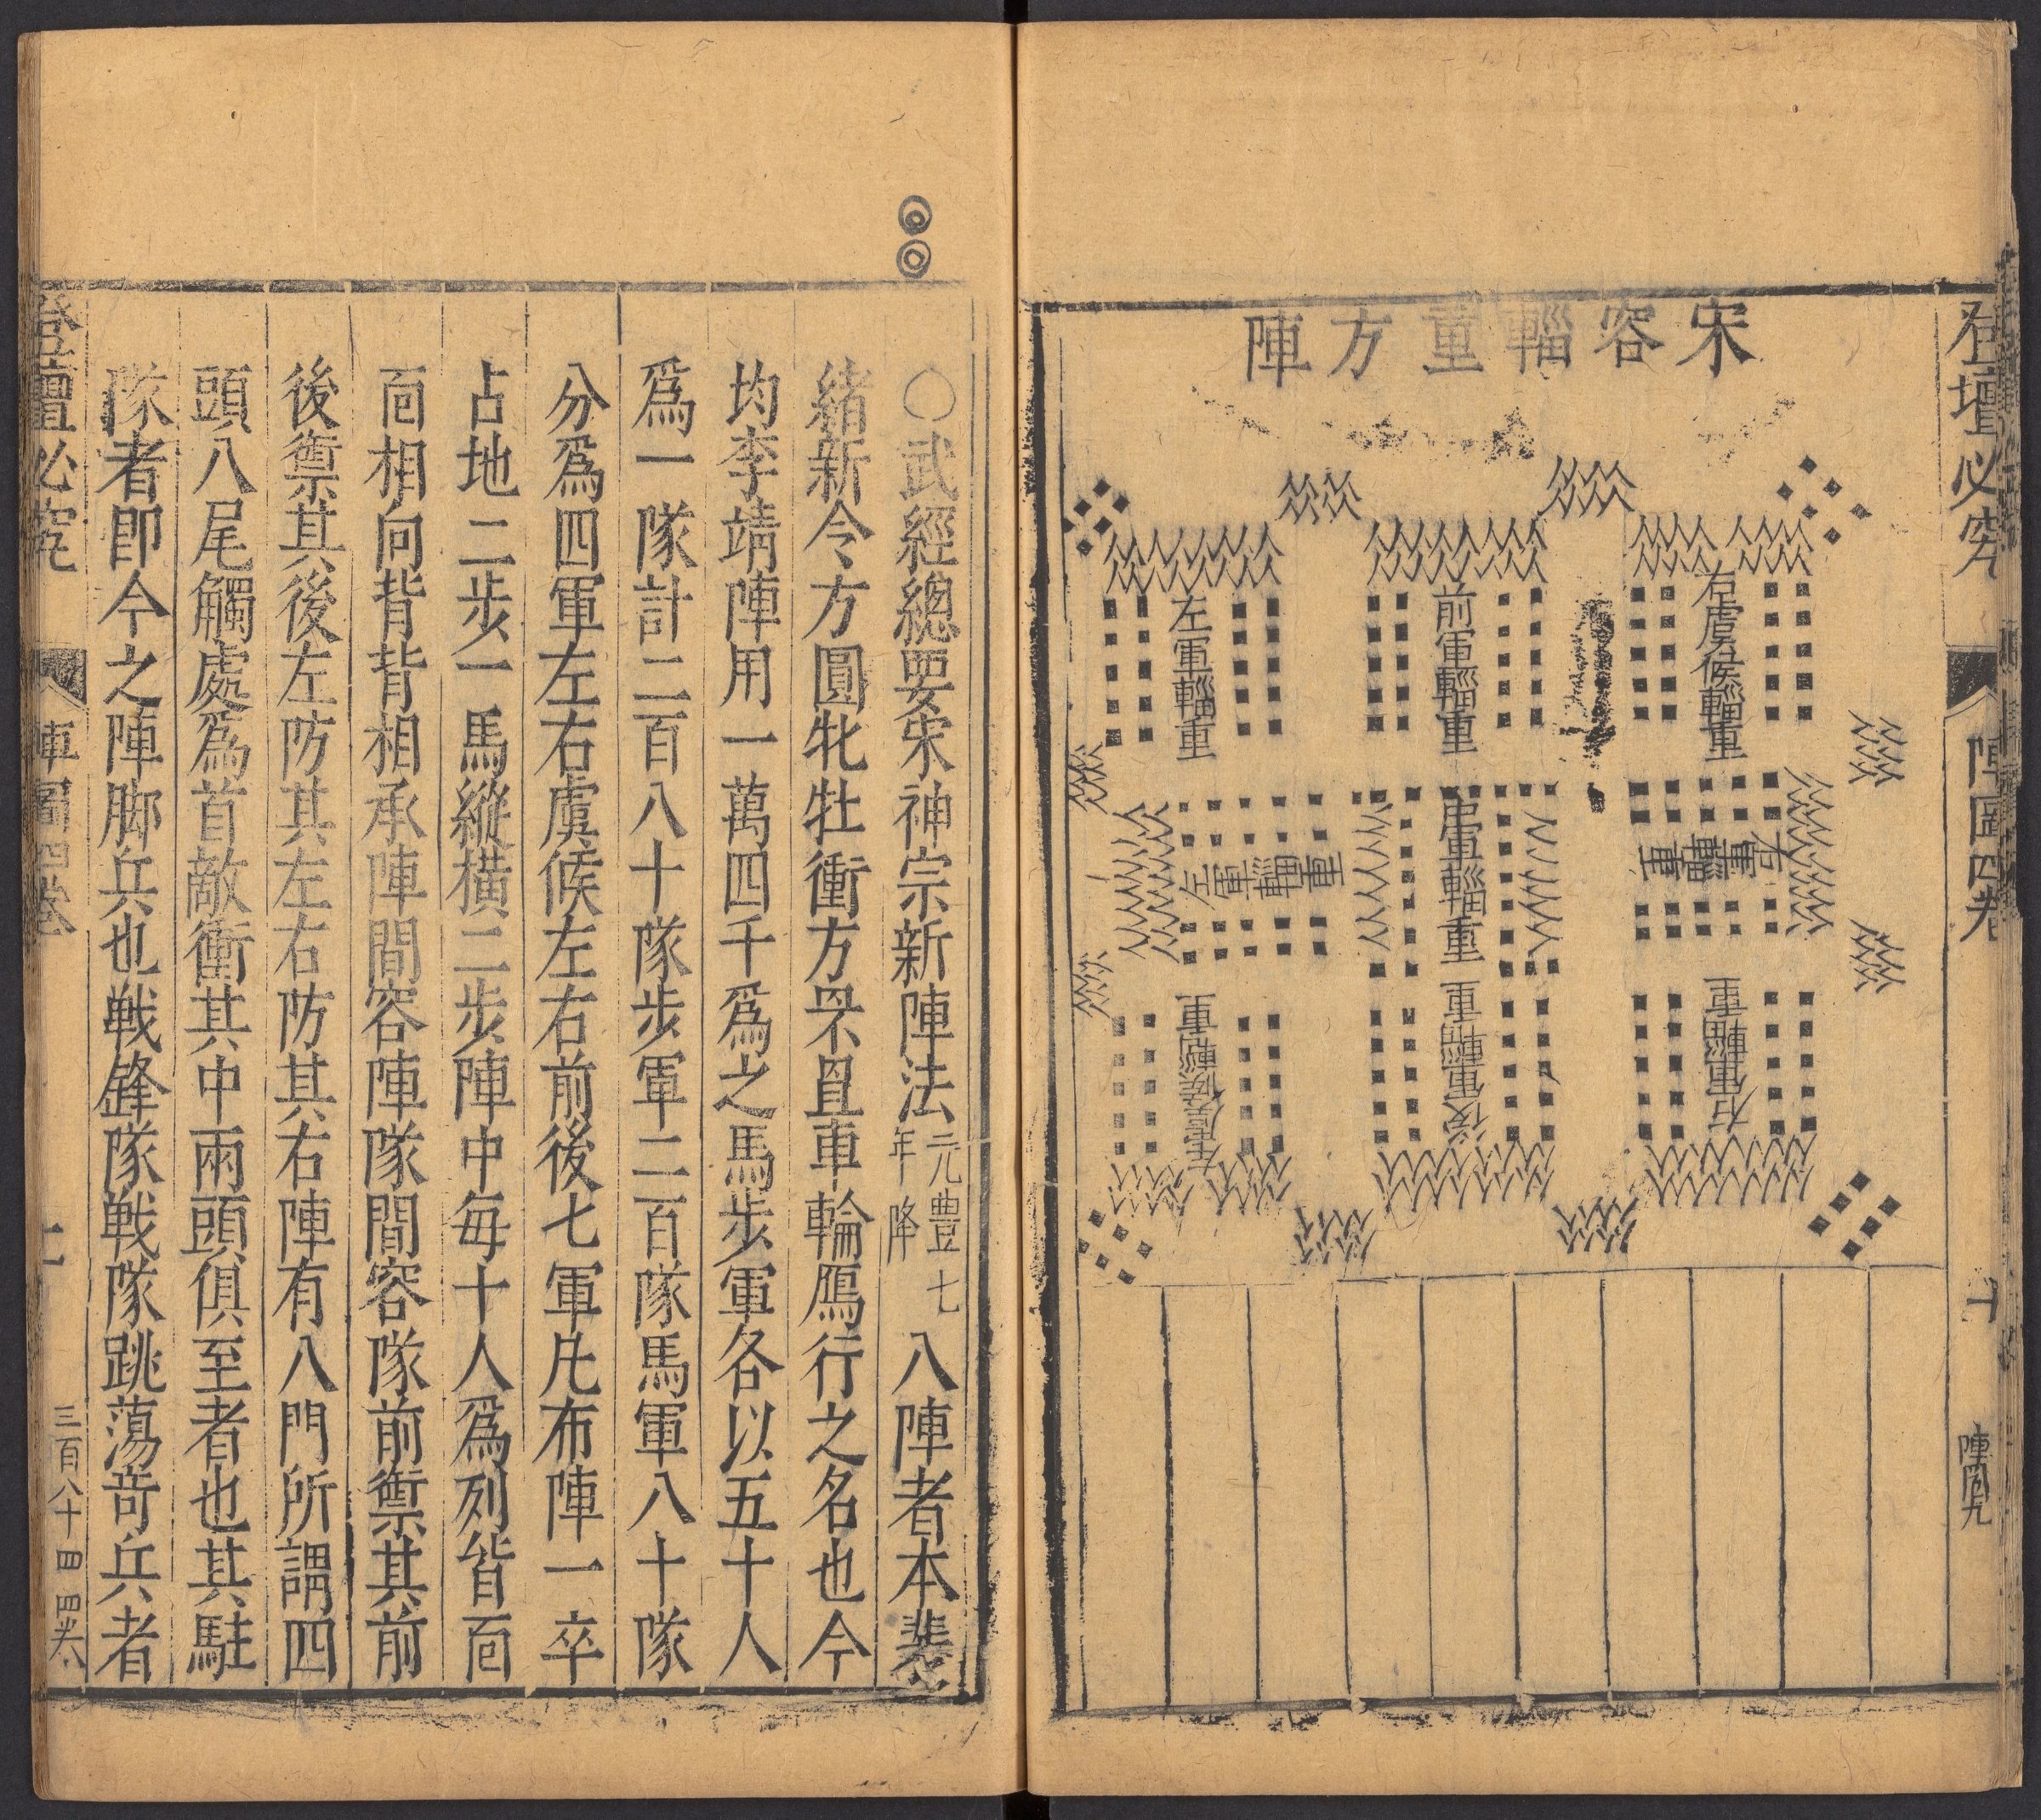 登壇必究
陣圖四卷
十
宋容輜重方陣
右虞候輜重
前軍輜重
左軍輜重
右軍輜重
中軍輜重
左軍輜重
右軍輜重
後軍輜重
左虞候輜重
○武經總要宋神宗新陣法元豊七年降八陣者本裴
緒新令方圓牝牡衝方罘罝車輪鴈行之名也今
均李靖陣用一萬四千爲之馬步軍各以五十人
爲一隊計二百八十隊步軍二百隊馬軍八十隊
分爲四軍左右虞候左右前後七軍凡布陣一卒
占地二步一馬縱横二步陣中每十人爲列皆靣
靣相向背背相承陣間容陣隊間容隊前禦其前
後禦其後左防其左右防其右陣有八門所謂四
頭八尾觸處爲首敵衝其中兩頭俱至者也其駐
隊者即今之陣脚兵也戦鋒隊戦隊跳蕩竒兵者
登壇必究
陣圖四卷
三百八十四